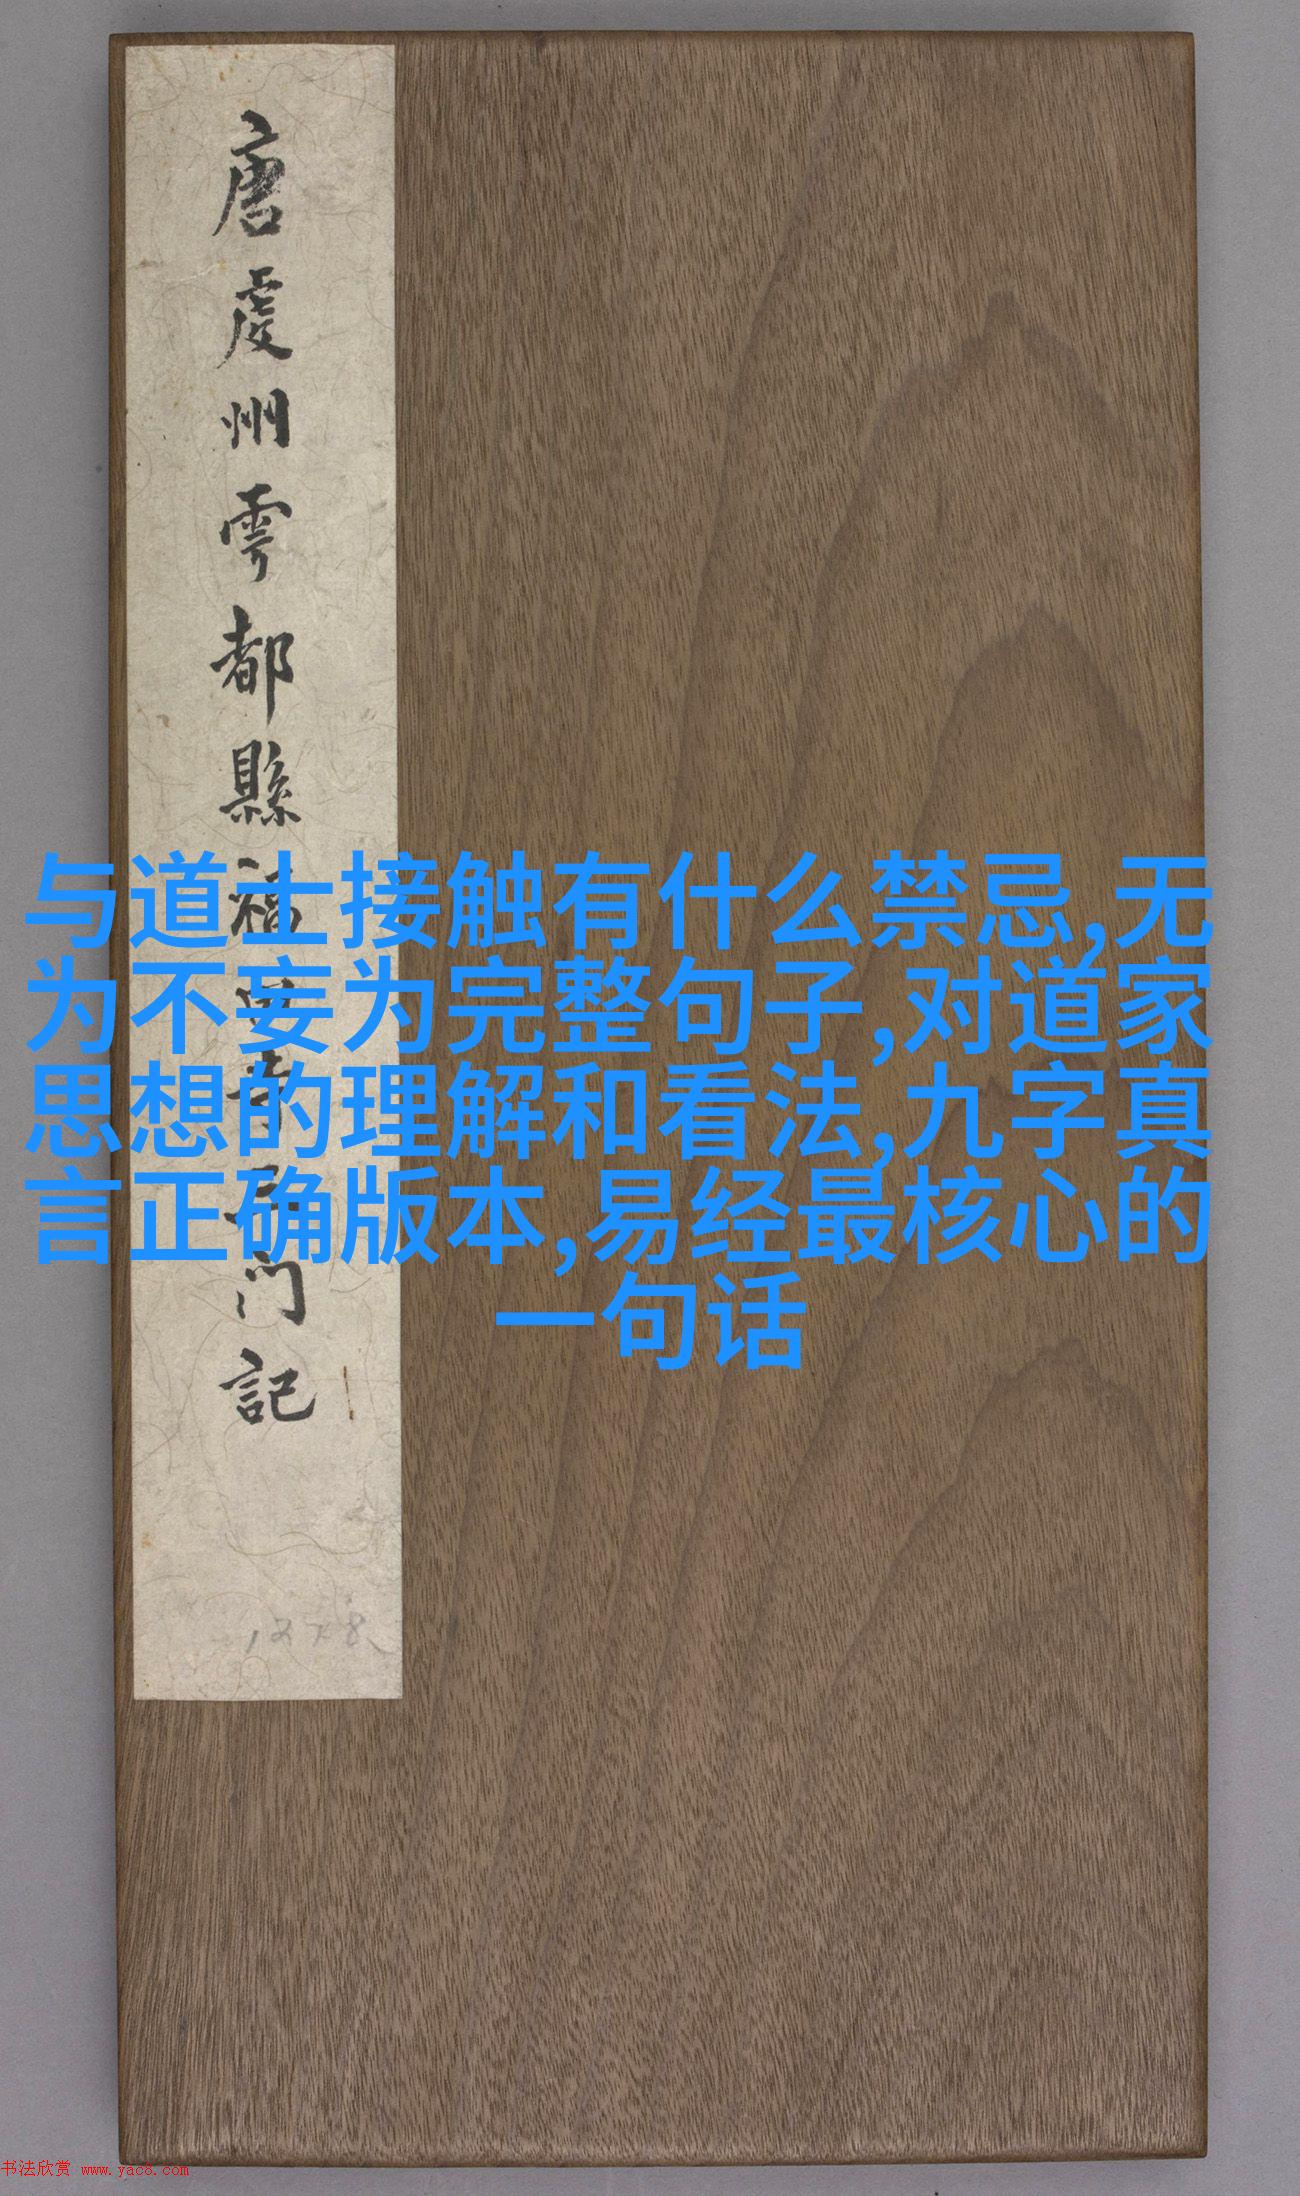 唐虔州雩都縣福田寺三門記
与道士接触有什么禁忌,无
为不妄为完整句子,对道家
思想的理解和看法,九字真
言正确版本,易经最核心的
一句话
书法欣赏 www.yac8.com